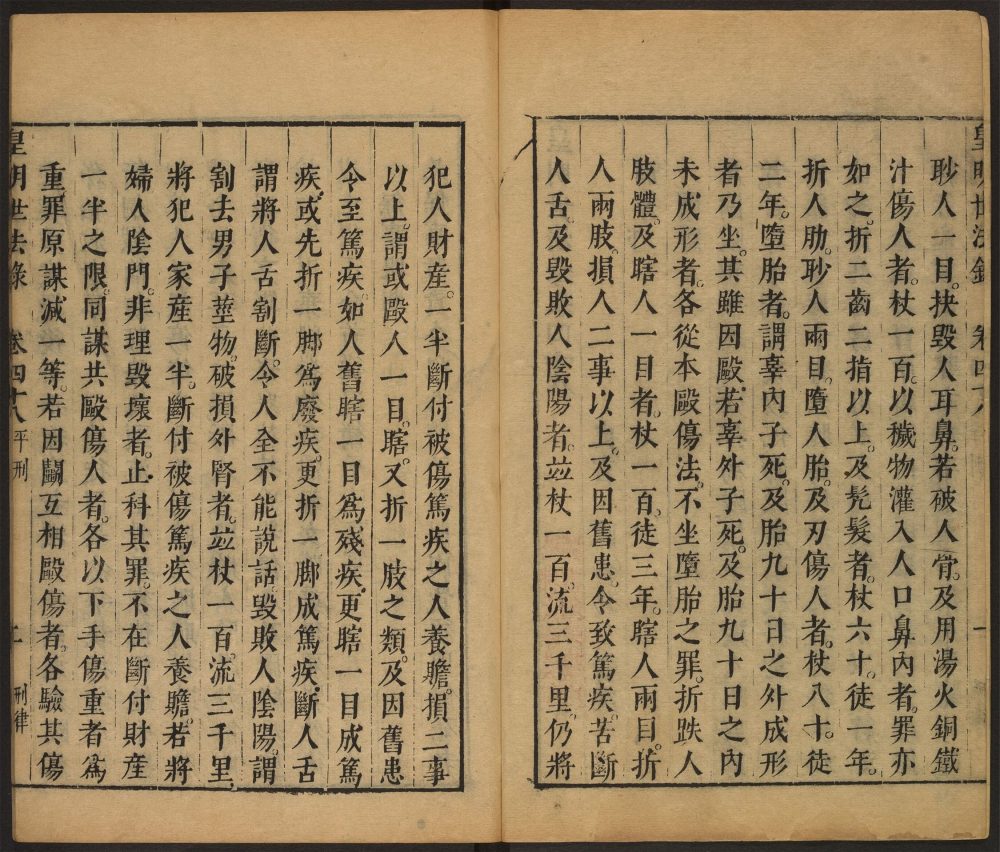 皇明世法錄 卷四十八 一
眇人一目。抉毀人耳鼻。若破人骨。及用湯火銅鐵
汁傷人者。杖一百。以穢物灌入人口鼻內者。罪亦
如之。折二齒二指以上。及髠髮者。杖六十。徒一年。
折人肋。眇人兩目。墮人胎。及刃傷人者。杖八十。徒
二年。墮胎者。謂辜內子死。及胎九十日之外成形
者乃坐。其雖因毆。若辜外子死。及胎九十日之內
未成形者。各從本毆傷法。不坐墮胎之罪。折跌人
肢體。及瞎人一目者。杖一百。徒三年。瞎人兩目。折
人兩肢。損人二事以上。及因舊患。令致篤疾。若斷
人舌。及毀敗人陰陽者。並杖一百。流三千里。仍將
犯人財產。一半斷付被傷篤疾之人養贍。損二事
以上。謂或毆人一目。瞎。又折一肢之類。及因舊患
令至篤疾。如人舊瞎一目爲殘疾。更瞎一目成篤
疾。或先折一脚爲廢疾。更折一脚成篤疾。斷人舌
謂將人舌割斷。令人全不能說話毀敗人陰陽。謂
割去男子莖物。破損外腎者。並杖一百。流三千里。
將犯人家產一半。斷付被傷篤疾之人養贍。若將
婦人陰門。非理毀壞者。止科其罪。不在斷付財產
一半之限。同謀共毆傷人者。各以下手傷重者爲
重罪原謀減一等。若因鬭互相毆傷者。各驗其傷
皇明世法錄 卷四十八 平刑 二 刑律